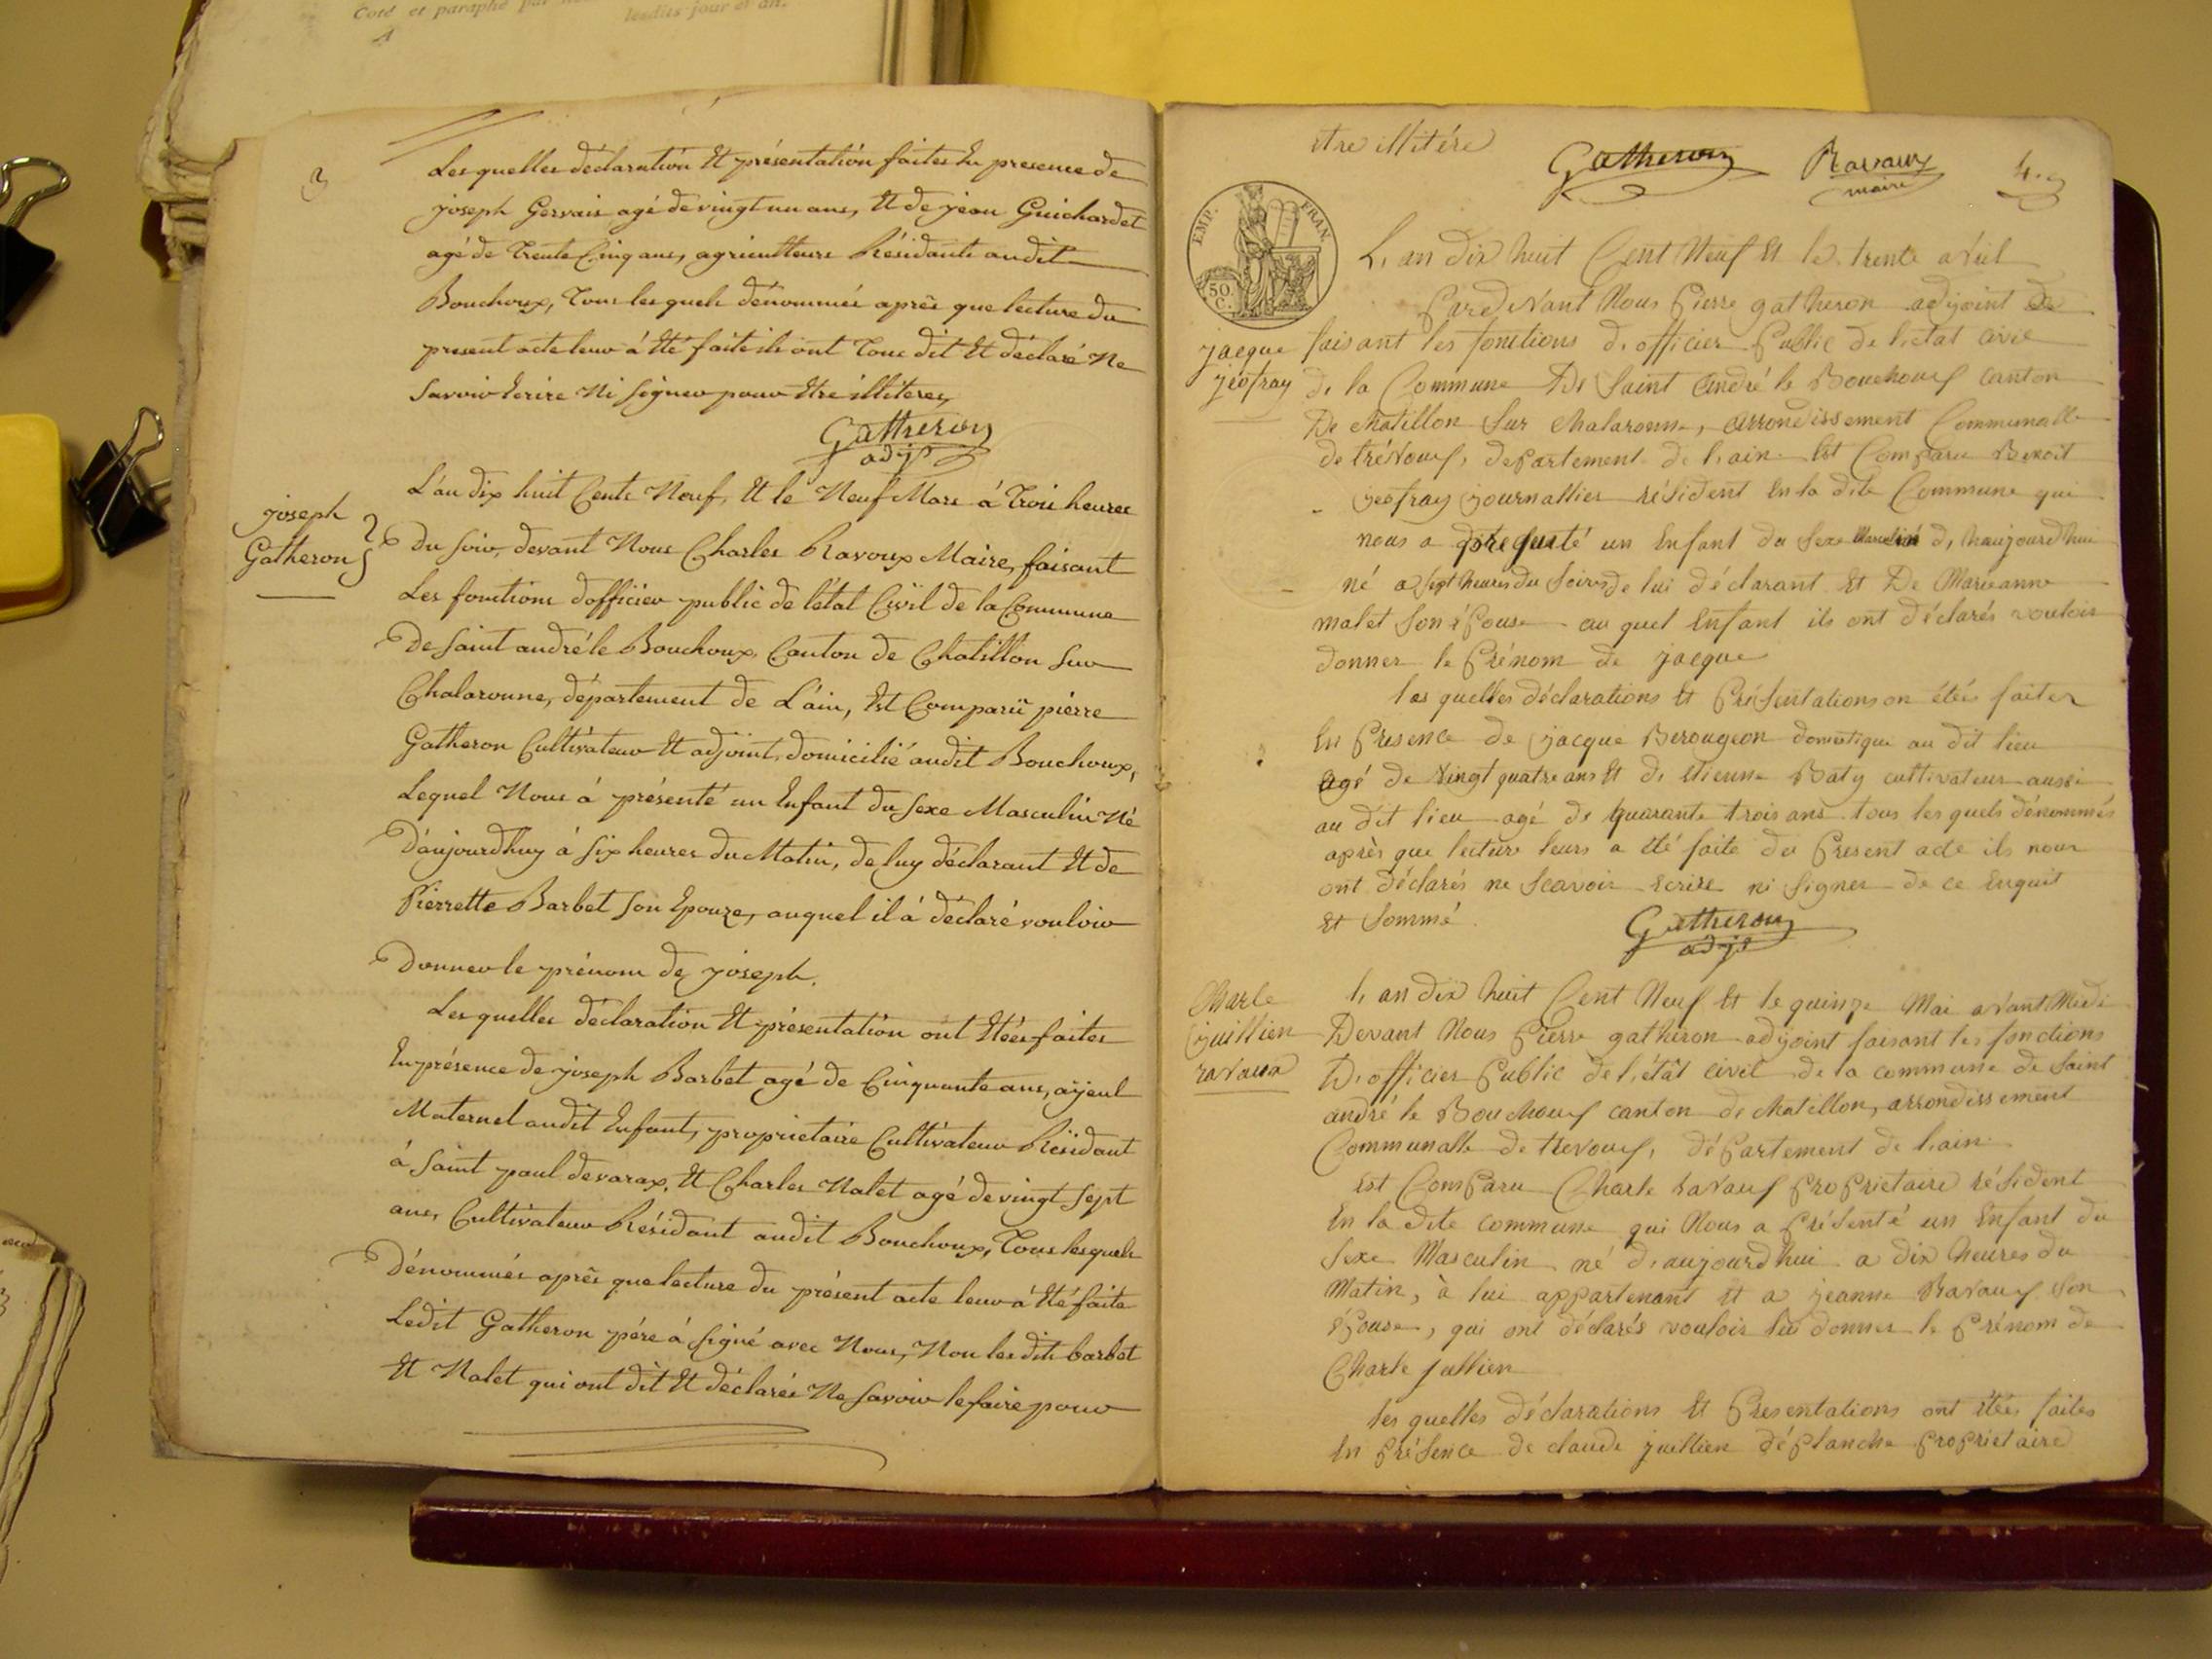 Coté et paraphé par
lesdits jour et an.
3
Les quelles déclaration Et présentation faites En presence de
joseph Gervais agé de vingt un ans, Et de jean Guichardet
agé de Trente Cinq ans, agriculteurs Résidants audit
Bouchoux, Tous lesquels dénommés après que lecture du
present acte leur à Eté faite ils ont Tous dit Et déclaré Ne
Savoir Ecrire Ni Signer pour Etre illiterés
Gatheron
adjt
joseph
Gatheron
L'an dix huit Cents Neuf, Et le Neuf Mars à Trois heures
Du soir, devant Nous Charles Ravoux Maire, faisant
Les fonctions d'officier public de l'état Civil de la Commune
De Saint andré le Bouchoux, Canton de Chatillon Sur
Chalaronne, département de L'ain, Est Comparü pierre
Gatheron Cultivateur Et adjoint, domicilié audit Bouchoux,
Lequel Nous à présenté un Enfant du Sexe Masculin Né
D'aujourdhuy à Six heures du Matin, de luy déclarant Et de
Pierrette Barbet Son Epouze, auquel il à déclaré vouloir
Donner le prénom de joseph.
Les quelles déclaration Et présentation ont Etées faites
En présence de joseph Barbet agé de Cinquante ans, ayeul
Maternel audit Enfant, proprietaire Cultivateur Résidant
à Saint paul de varax, Et Charles Nalet agé de vingt Sept
ans, Cultivateur Résidant audit Bouchoux, Tous lesquels
Dénommés après que lecture du présent acte leur à Eté faite
Ledit Gatheron père à Signé avec Nous, Non les dits barbet
Et Nalet qui ont dit Et déclarés Ne Savoir le faire pour
etre illitéré
Gatheron
Ravaux
maire
4.
EMP. FRAN.
50 C.
jacque
jeofray
L, an dix huit Cent Neuf Et le trente avril
Pardevant Nous Pierre gatheron adjoint de
faisant les fonctions d, officier Public de l, etat civil
de la Commune De Saint André le Bouchoux canton
De chatillon Sur chalaronne, arrondissement Communalle
de trévoux, departement de l, ain. Est Comparu Benoit
jeofray journallier résident En la dite Commune qui
nous a présenté un Enfant du Sexe Masculin d, haujourdhui
né a Sept heures du Soir de lui déclarant Et De Marianne
malet Son épouse au quel Enfant ils ont déclarés vouloir
donner le Prénom de jacque
les quelles déclarations Et Présentations on étés faites
En Presence de jacque Berougeon domestique au dit lieu
agé de Vingt quatre ans Et de Etienne Baty cultivateur aussi
au dit lieu agé de quarante trois ans tous les quels dénommés
après que lecture leurs a été faite du Present acte ils nous
ont déclarés ne Scavoir Ecrire ni Signer de ce Enquit
Et Sommé.
Gatheron
adjt
Charle
juillien
ravaux
l, an dix huit Cent Neuf Et le quinze Mai avant Midi
Devant Nous Pierre gatheron adjoint faisant les fonctions
D, officier Public de l, état civil de la commune de Saint
andré le Bouchoux canton de chatillon, arrondissement
Communalle de trevoux, département de l, ain.
Est Comparu Charle ravaux Proprietaire résident
En la dite commune qui Nous a Présenté un Enfant du
Sexe Masculin né d, aujourdhui a dix heures du
Matin, à lui appartenant Et a jeanne Ravaux Son
épouse, qui ont déclarés vouloir lui donner le Prénom de
Charle jullien
les quelles déclarations Et Presentations ont étées faites
En Présence de claude juillien déPlanche Proprietaire